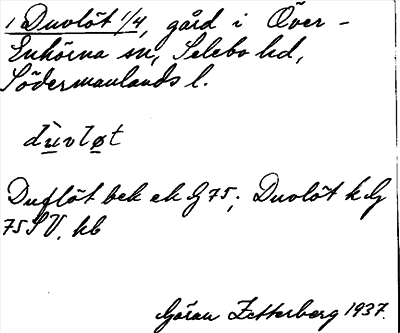 1 Duvlöt 1/4, gård i Över-
Enhörna sn, Selebo hd,
Södermanlands l.
dùvløt
Duflöt bek ek G 75; Duvlöt k G
75 S V. kb
Göran Zetterberg 1937.